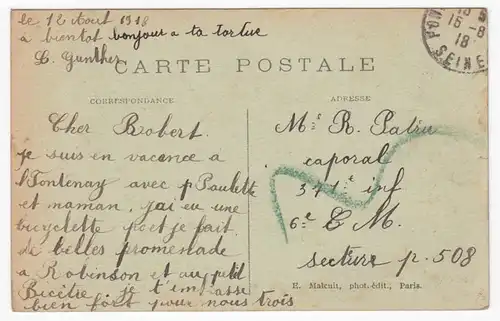 le 12 Aout 1918
à bientot bonjour a ta tortue
L. Gunther
CARTE POSTALE
CORRESPONDANCE
ADRESSE
Cher Robert.
je suis en vacance à
l'Fontenay avec p Paulette
et maman, j'ai eu une
bicyclette et je fait
de belles promenade
à Robinson et au p'tit
Bicêtre je t'embrasse
bien fort pour nous trois
Mr R. Patru
caporal
371e inf
6e C M.
secteur p. 508
E. Malcuit, phot.-édit., Paris.
16-8
18
SEINE